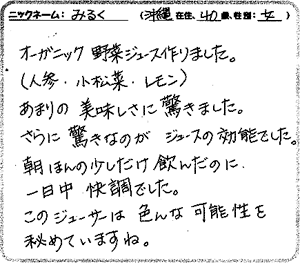 ニックネーム: みるく (沖縄 在住、40 歳、性別: 女 )
オーガニック 野菜ジュース作りました。
(人参・小松菜・レモン)
あまりの 美味しさに 驚きました。
さらに 驚きなのが ジュースの効能でした。
朝ほんの少しだけ 飲んだのに
一日中 快調でした。
このジューサーは 色んな 可能性を
秘めていますね。